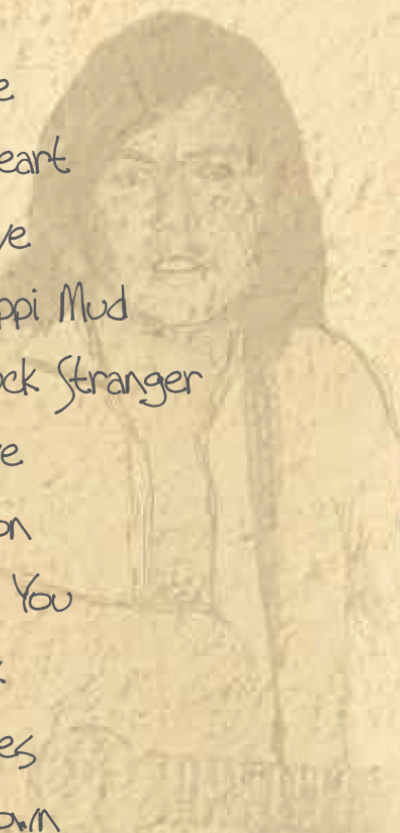 e
eart
ve
ppi Mud
ock Stranger
re
on
You
k
es
own